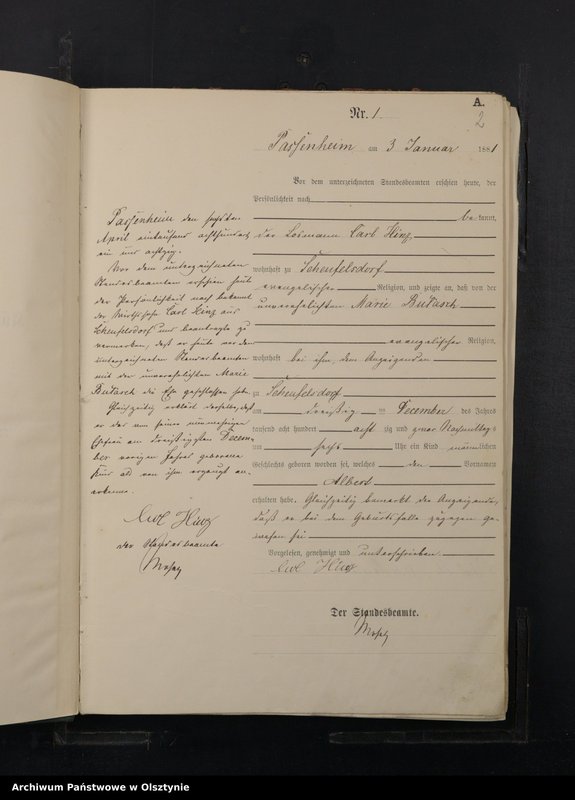 A.
2
Nr. 1
Passenheim am 3 Januar 1881
Vor dem unterzeichneten Standesbeamten erschien heute, der
Persönlichkeit nach
be kannt,
der Losmann Carl Hinz
wohnhaft zu Scheufelsdorf
evangelischer Religion, und zeigte an, daß von der
unverehelichten Marie Butasch
evangelischer Religion,
wohnhaft bei ihm, dem Anzeigenden
zu Scheufelsdorf
am dreißig ten December des Jahres
tausend acht hundert acht zig und zwar Nachmittags
um sechs Uhr ein Kind männlichen
Geschlechts geboren worden sei, welches den Vornamen
Albert
erhalten habe. Gleichzeitig bemerkt der Anzeigende,
daß er bei dem Geburtsfalle zugegen ge
wesen sei
Vorgelesen, genehmigt und unterschrieben.
Carl Hinz
Der Standesbeamte.
Passenheim den sechsten
April eintausend achthundert
ein und achtzig.
Vor dem unterzeichneten
Standesbeamten erschien heute
der Persönlichkeit nach bekannt
der Wirthssohn Carl Hinz aus
Scheufelsdorf und beantragte zu
vermerken, daß er heute vor dem
unterzeichneten Standesbeamten
mit der unverehelichten Marie
Butasch die Ehe geschlossen habe.
Gleichzeitig erklärt derselbe, daß
er das von seiner nunmehrigen
Ehefrau am dreißigsten Decem-
ber vorigen Jahres geborene
Kind als von ihm erzeugt an-
erkenne.
Carl Hinz
der Standesbeamte
Archiwum Państwowe w Olsztynie